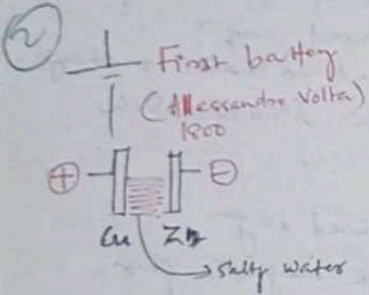 2
First battery
(Alessandro Volta)
1800
+ -
Cu Zn
salty water